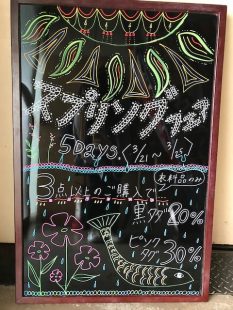 スプリングフェア
5Days (3/21〜3/25)
衣料品のみ
3点以上のご購入で
黒タグ 20%
ピンクタグ 30%